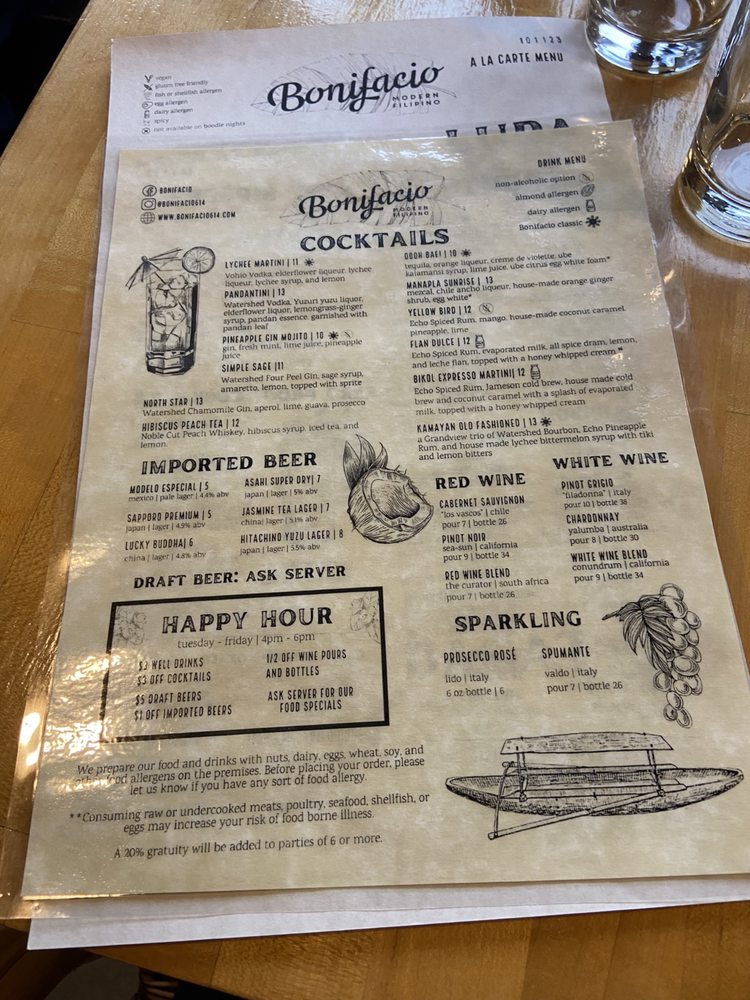 101123
A LA CARTE MENU
vegan
gluten free friendly
fish or shellfish allergen
egg allergen
dairy allergen
spicy
not available on boodle nights
Bonifacio
MODERN
FILIPINO
DRINK MENU
BONIFACIO
@BONIFACIO614
WWW.BONIFACIO614.COM
Bonifacio
MODERN
FILIPINO
non-alcoholic option
almond allergen
dairy allergen
Bonifacio classic
COCKTAILS
LYCHEE MARTINI | 11
Vohio Vodka, elderflower liqueur, lychee
liqueur, lychee syrup, and lemon
PANDANTINI | 13
Watershed Vodka, Yuzuri yuzu liquor,
elderflower liquor, lemongrass-ginger
syrup, pandan essence, garnished with
pandan leaf
PINEAPPLE GIN MOJITO | 10
gin, fresh mint, lime juice, pineapple
juice
SIMPLE SAGE |11
Watershed Four Peel Gin, sage syrup,
amaretto, lemon, topped with sprite
NORTH STAR | 13
Watershed Chamomile Gin, aperol, lime, guava, prosecco
HIBISCUS PEACH TEA | 12
Noble Cut Peach Whiskey, hibiscus syrup, iced tea, and
lemon.
OOOH BAE! | 10
tequila, orange liqueur, creme de violette, ube
kalamansi syrup, lime juice, ube citrus egg white foam*
MANAPLA SUNRISE | 13
mezcal, chile ancho liqueur, house-made orange ginger
shrub, egg white*
YELLOW BIRD | 12
Echo Spiced Rum, mango, house-made coconut caramel,
pineapple, lime
FLAN DULCE | 12
Echo Spiced Rum, evaporated milk, all spice dram, lemon,
and leche flan, topped with a honey whipped cream *
BIKOL EXPRESSO MARTINI| 12
Echo Spiced Rum, Jameson cold brew, house made cold
brew and coconut caramel with a splash of evaporated
milk, topped with a honey whipped cream
KAMAYAN OLD FASHIONED | 13
a Grandview trio of Watershed Bourbon, Echo Pineapple
Rum, and house made lychee bittermelon syrup with tiki
and lemon bitters
IMPORTED BEER
MODELO ESPECIAL | 5
mexico | pale lager | 4.4% abv
SAPPORO PREMIUM | 5
japan | lager | 4.9% abv
LUCKY BUDDHA| 6
china | lager | 4.8% abv
ASAHI SUPER DRY| 7
japan | lager | 5% abv
JASMINE TEA LAGER | 7
china| lager | 5.1% abv
HITACHINO YUZU LAGER | 8
japan | lager | 5.5% abv
DRAFT BEER: ASK SERVER
RED WINE
CABERNET SAUVIGNON
"los vascos" | chile
pour 7 | bottle 26
PINOT NOIR
sea-sun | california
pour 9 | bottle 34
RED WINE BLEND
the curator | south africa
pour 7 | bottle 26
WHITE WINE
PINOT GRIGIO
"filadonna" | italy
pour 10 | bottle 38
CHARDONNAY
yalumba | australia
pour 8 | bottle 30
WHITE WINE BLEND
conundrum | california
pour 9 | bottle 34
SPARKLING
PROSECCO ROSÉ
lido | italy
6 oz bottle | 6
SPUMANTE
valdo | italy
pour 7 | bottle 26
HAPPY HOUR
tuesday - friday | 4pm - 6pm
$3 WELL DRINKS
$3 OFF COCKTAILS
$5 DRAFT BEERS
$1 OFF IMPORTED BEERS
1/2 OFF WINE POURS
AND BOTTLES
ASK SERVER FOR OUR
FOOD SPECIALS
We prepare our food and drinks with nuts, dairy, eggs, wheat, soy, and
other food allergens on the premises. Before placing your order, please
let us know if you have any sort of food allergy.
**Consuming raw or undercooked meats, poultry, seafood, shellfish, or
eggs may increase your risk of food borne illness.
A 20% gratuity will be added to parties of 6 or more.